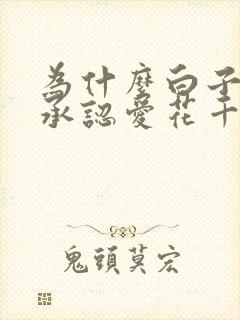 為什麼白子
承認愛花千
鬼頭莫宏